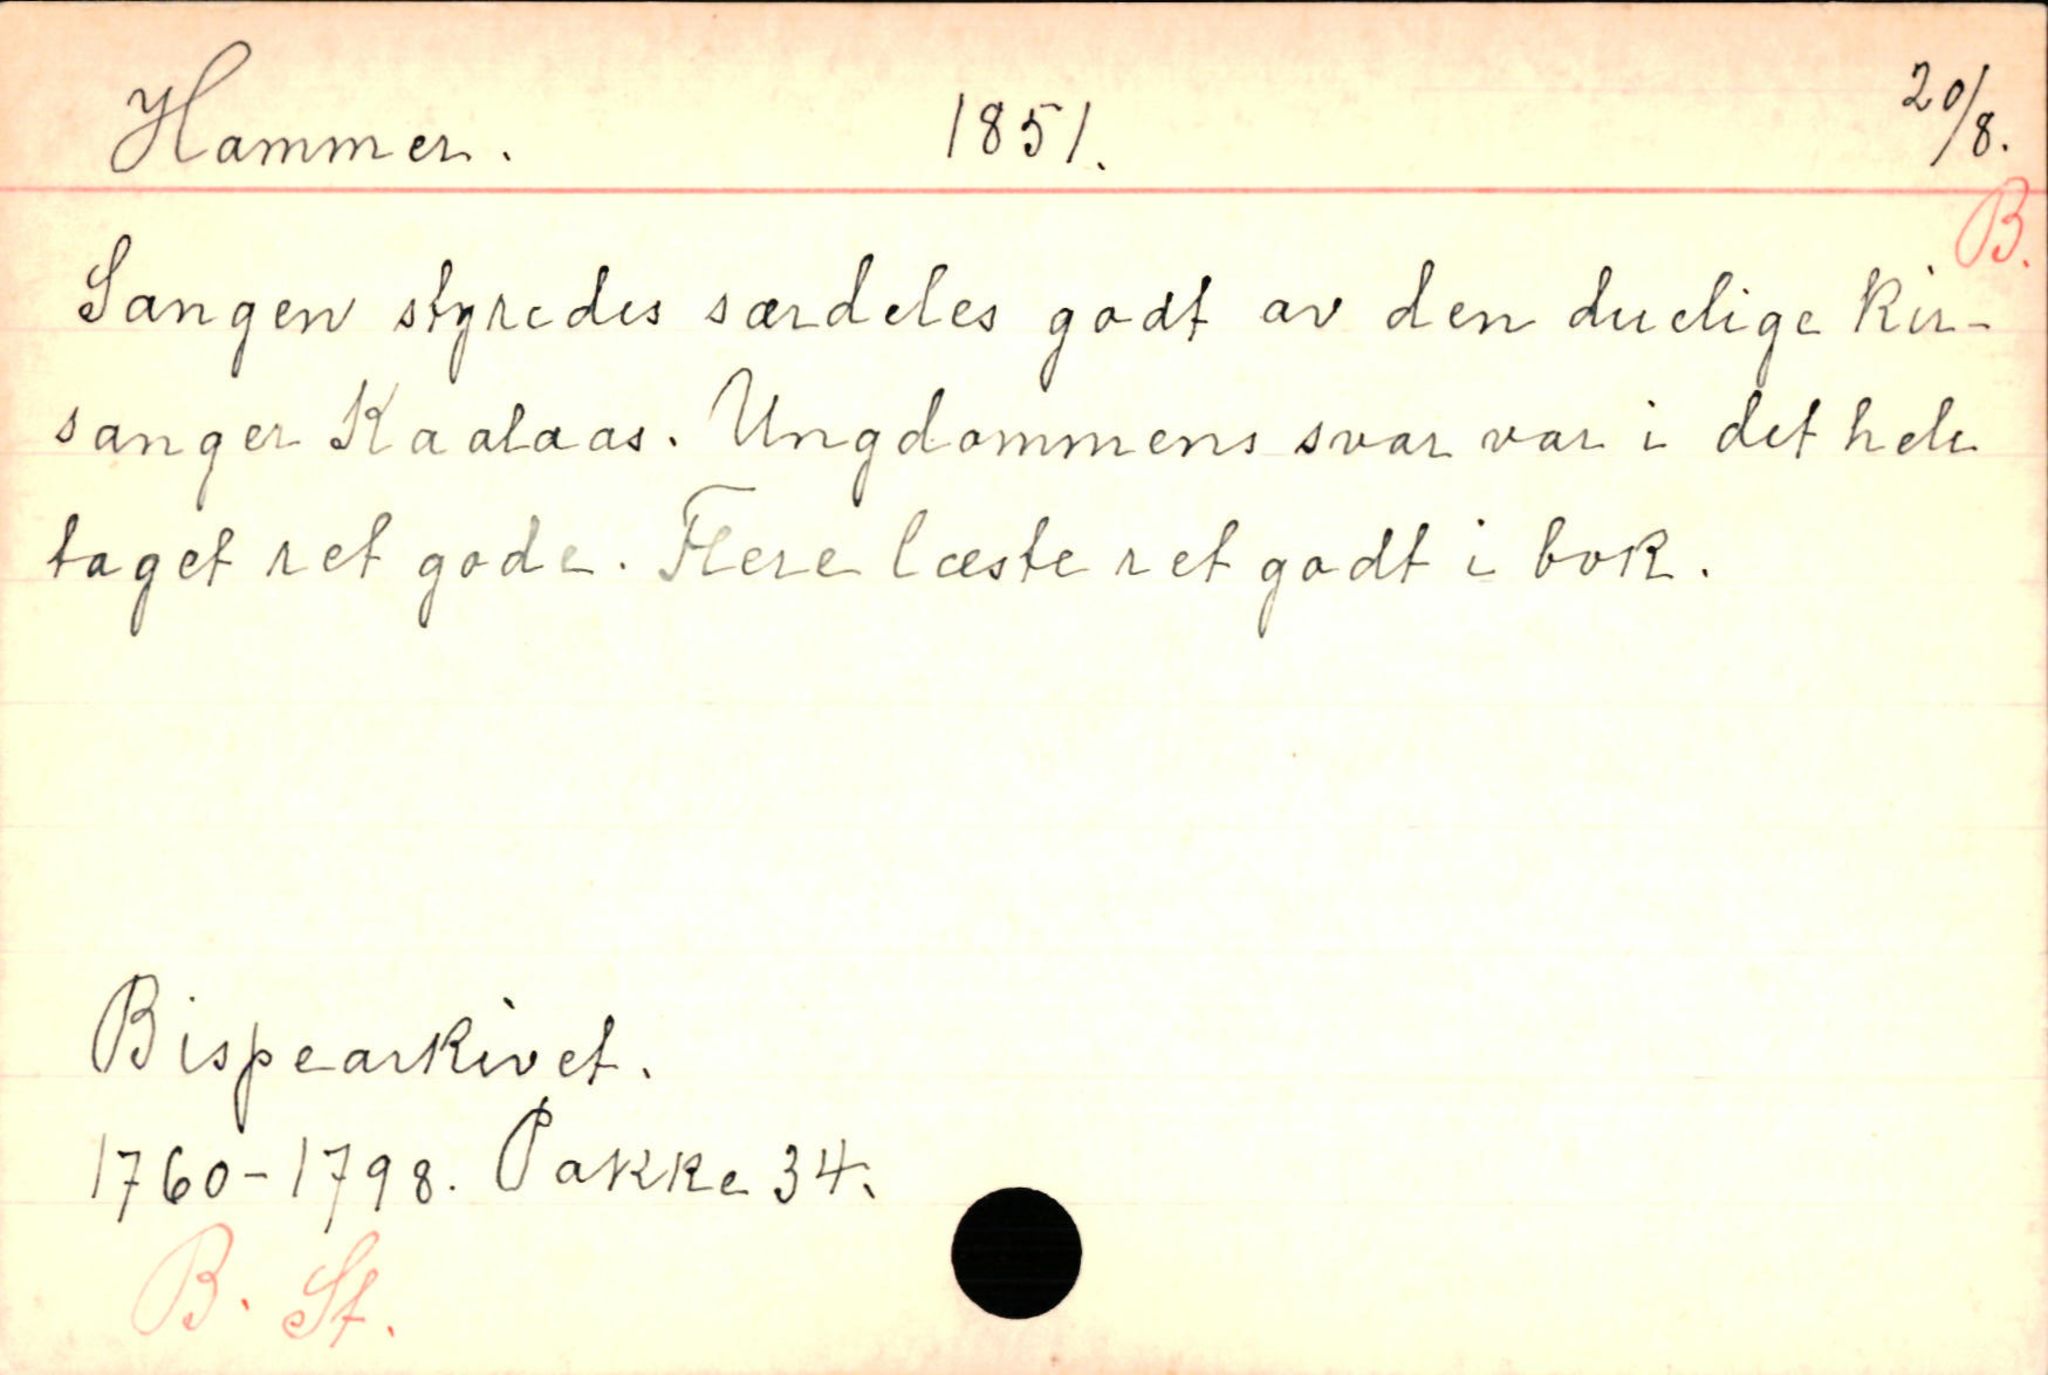 Hammer. 1851. 20/8.
B.
Sangen styredes særdeles godt av den duelige kir-
sanger Kaalaas. Ungdommens svar var i det hele
taget ret gode. Flere læste ret godt i bok.
Bispearkivet.
1760-1798. Pakke 34.
B. St.